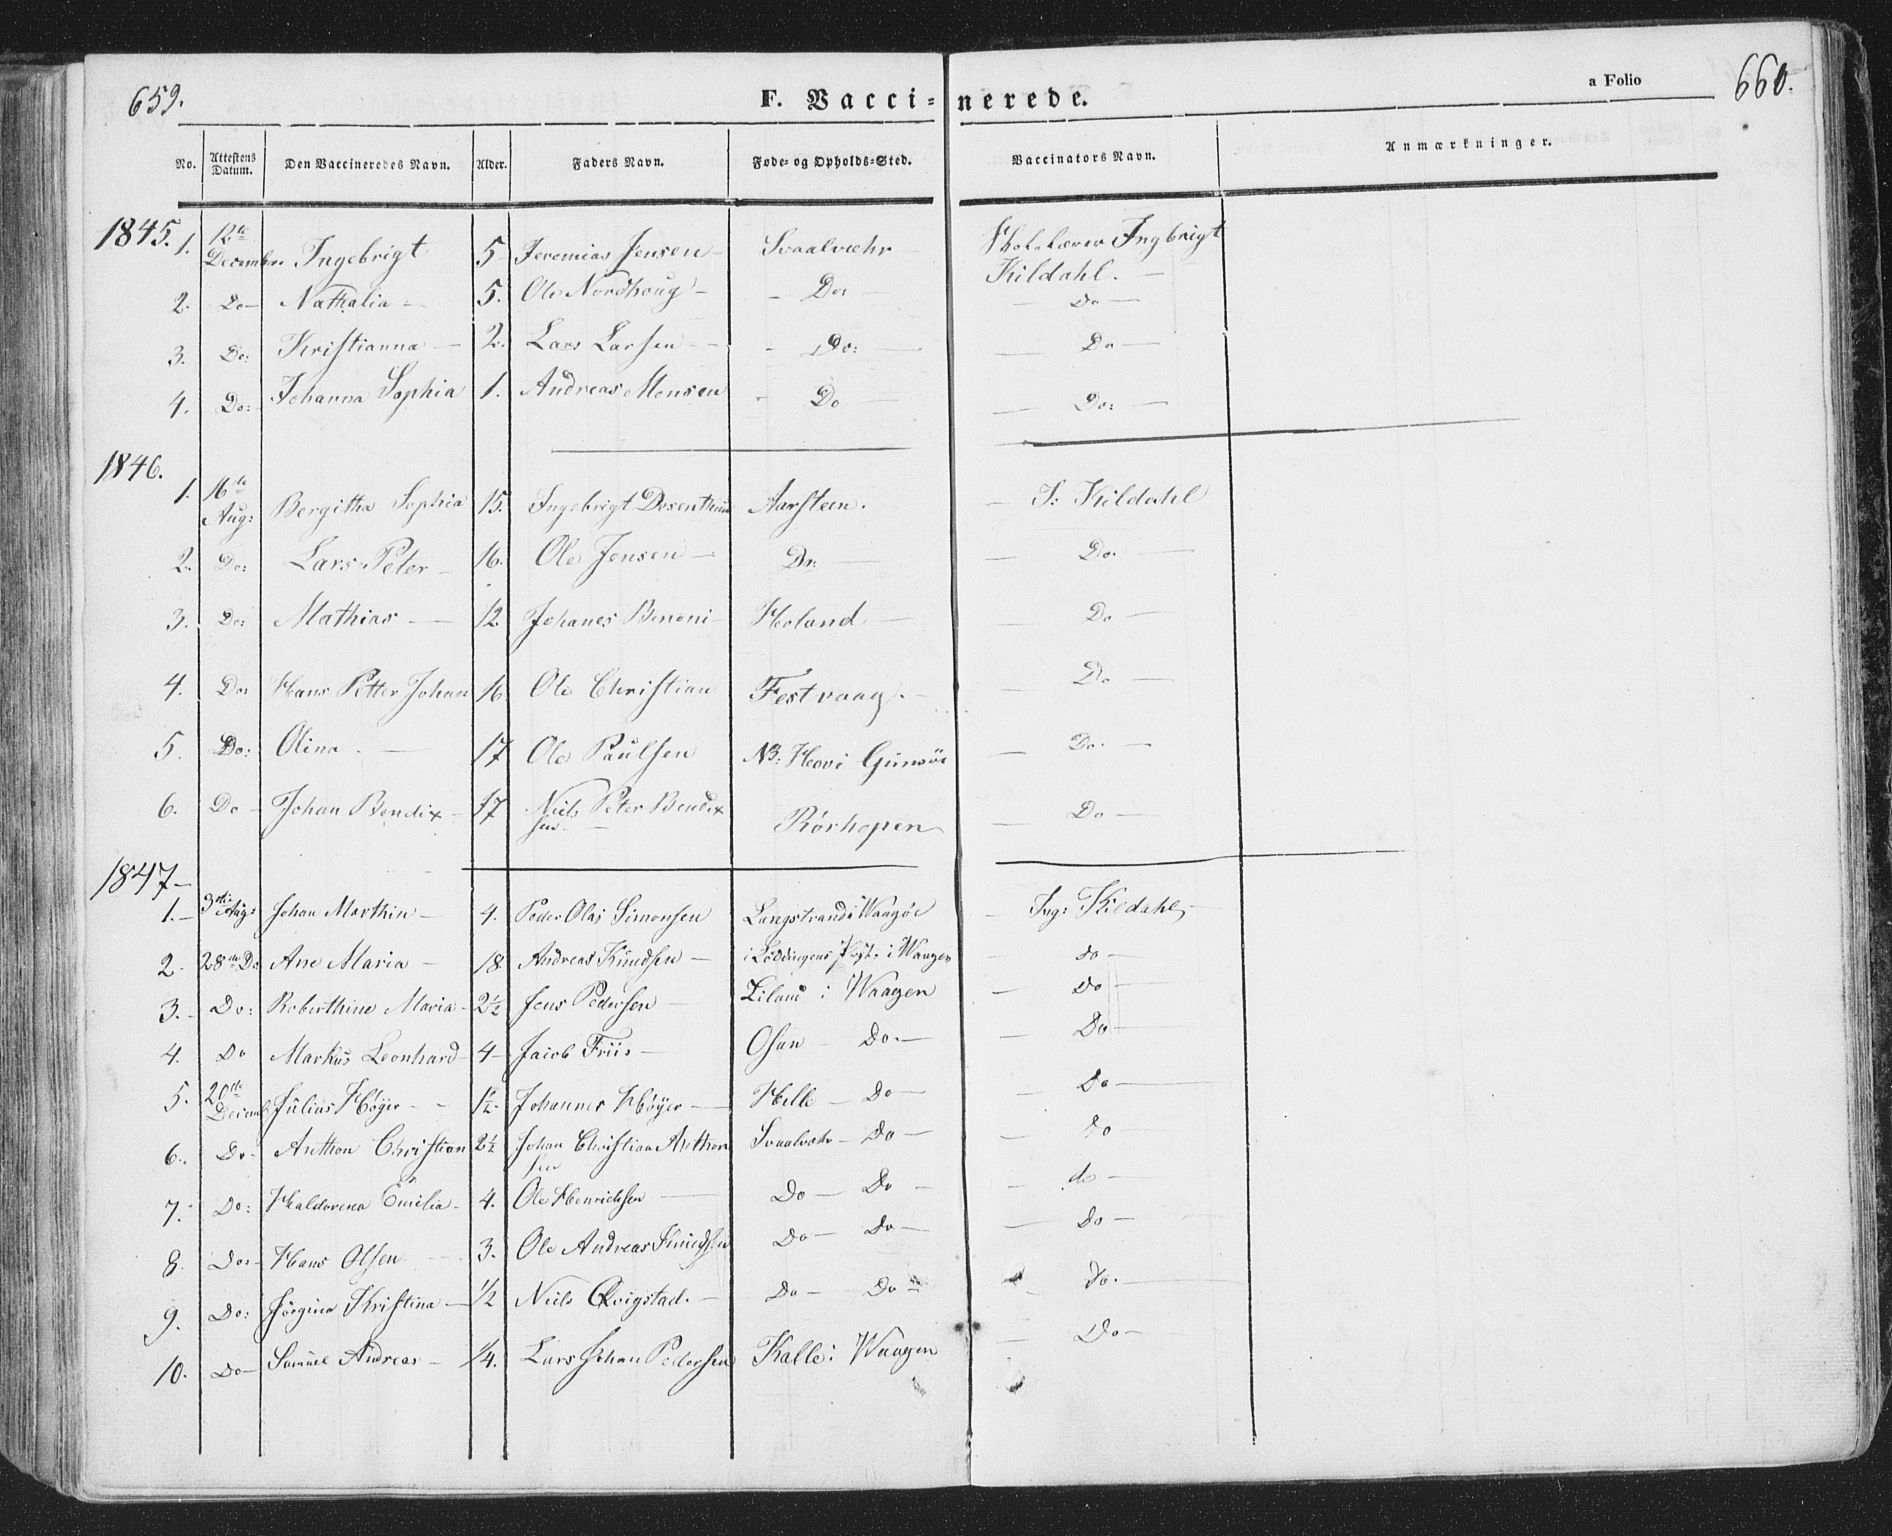 659.
F. Vacci=nerede.
a Folio
660.
No. | Attestens Datum. | Den Vaccineredes Navn. | Alder. | Faders Navn. | Føde- og Opholds-Sted. | Vaccinators Navn. | Anmærkninger.
1845.
1. | 12te December | Ingebrigt | 5 | Jeremias Jensen - | Svaalvæhr | Skolelærer Ingbrigt Kildahl. -
2. | Do - | Nathalia - | 5. | Ole Nordhoug - | - Do: | - Do -
3. | Do: | Kristianna - | 2. | Lars Larsen - - | - Do: - | - Do -
4. | Do: - | Johanna Sophia | 1. | Andreas Monsen | - Do - | - Do: -
1846.
1. | 16te Aug: | Bergitha Sophia | 15. | Ingebrigt | Aarsteen. | - I: Kildahl
2. | Do: | Lars Peter - | 16. | Ole Jensen - | Do: - | - Do. -
3. | Do: | Mathias - | 12. | Johanes Benoni - | Holand - | - Do -
4. | Do: | Hans Petter Johan | 16 | Ole Christian | Festvaag. - | - Do -
5. | Do: | Olina. - | 17 | Ole Paulsen | NB: Hovi Gimsöe | - Do. -
6. | Do - | Johan Bendix - | 17 | Niels Peter Bendixsen - | Rørhopen | - Do -
1847 -
1. - | 3die Aug: | Johan Marthin - | 4. | Peder Olaj Simonsen | Langstrand i Waagöe | - Ing: Kildahl, -
2 - | 28de Do | Ane Maria - | 18. | Andreas Knudsen - | i Löddingens Pgt. i Waagen | - do -
3. - | Do: | Roberthine Maria - | 2½ | Jens Pedersen - | Liland i Waagen | - Do -
4. | Do | Markus Leonhard - | 4 - | Jacob Friis - | Osan - Do. - | - Do -
5. | 20de Decemb. | Julias Höyer - - | 1½. | Johannes Höyer - | Helle - Do - | - Do -
6. | Do - | Anthon Christian | 2½ | Johan Christian Anthonsen | Svaalvæhr - Do - | - Do -
7. | Do: | Haldorena Emilia - | 4. | Ole Henrichsen - | Do - Do - | - do -
8. | Do: - | Hans Olsen - | 3. | Ole Andreas Knudsen | Do - Do - | - Do -
9. | Do: | Jörgina Kristina - | 1/2 | Niels Qvigstad. - | Do - Do - | - Do. -
10. | Do - | Samuel Andreas - | 1/4. | Lars Johan Pedersen | Kalle i Waagen | - Do -